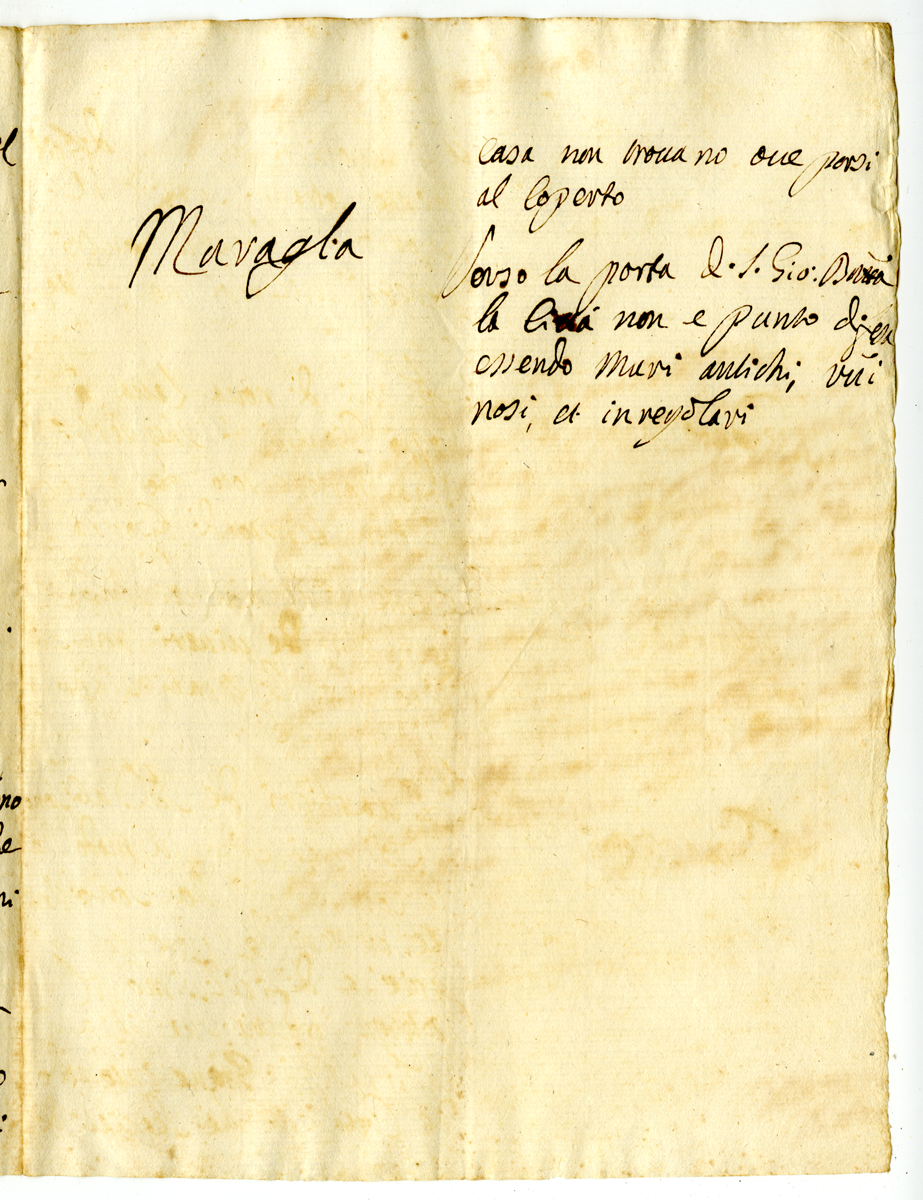 Muragl.a
casa non trouano oue porsi
al coperto
Verso la porta di S. Gio: Batta
la Città non e punto difesa
essendo Muri antichi, rui
nosi, et inregolari